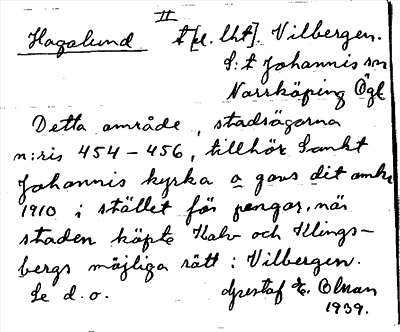 II
Hagalund t [el. lht]. Vilbergen.
S:t Johannis sn
Norrköping Ögl
Detta område, stadsägorna
n:ris 454-456, tillhör Sankt
Johannis kyrka o gavs dit omkr
1910 i stället för pengar, när
staden köpte Halv och Klings-
bergs möjliga rätt i Vilbergen.
Se d. o. Gustaf E. Olman
1939.